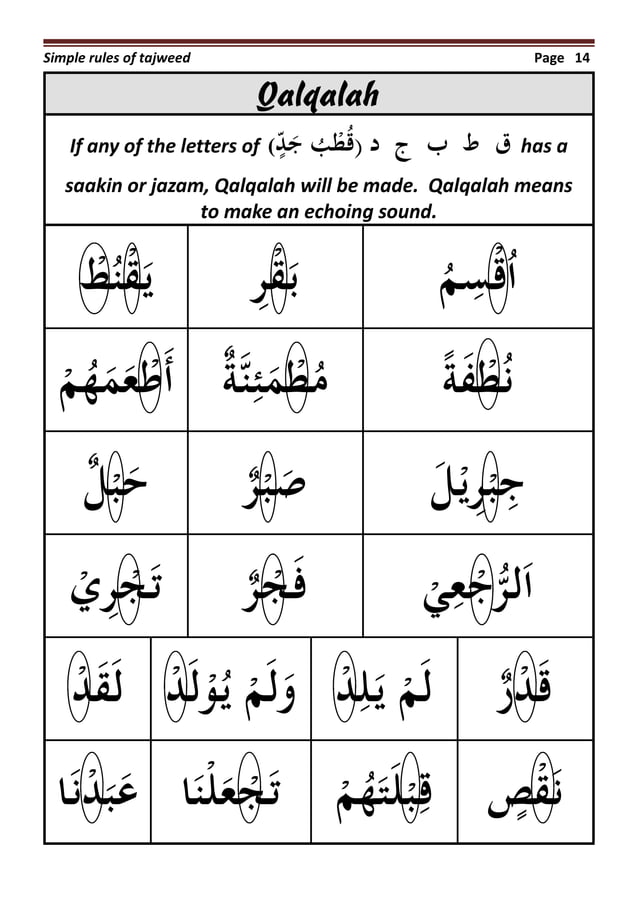 Simple rules of tajweed Page 14
Qalqalah
If any of the letters of (قُطْبُ جَدٍّ) ق ط ب ج د has a
saakin or jazam, Qalqalah will be made. Qalqalah means
to make an echoing sound.
اُقْسِمُ بَقْرِ يَقْنُطْ
نُطْفَةً مُطْمَئِنَّةٌ أَطْعَمَهُمْ
جِبْرِيْلَ صَبْرٌ حَبْلٌ
اَلرُّجْعِيْ فَجْرٌ تَجْرِيْ
قَدْرٌ لَمْ يَلِدْ وَلَمْ يُوْلَدْ لَقَدْ
نَقْصٍ قِبْلَتَهُمْ تَجْعَلْنَا عَبَدْنَا